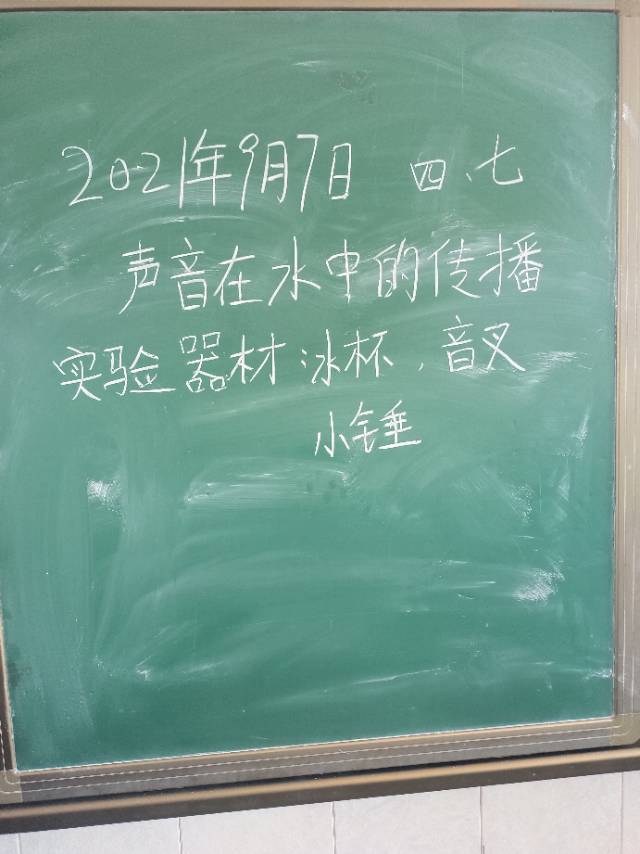 2021年9月7日 四、七
声音在水中的传播
实验器材:冰杯,音叉
小锤